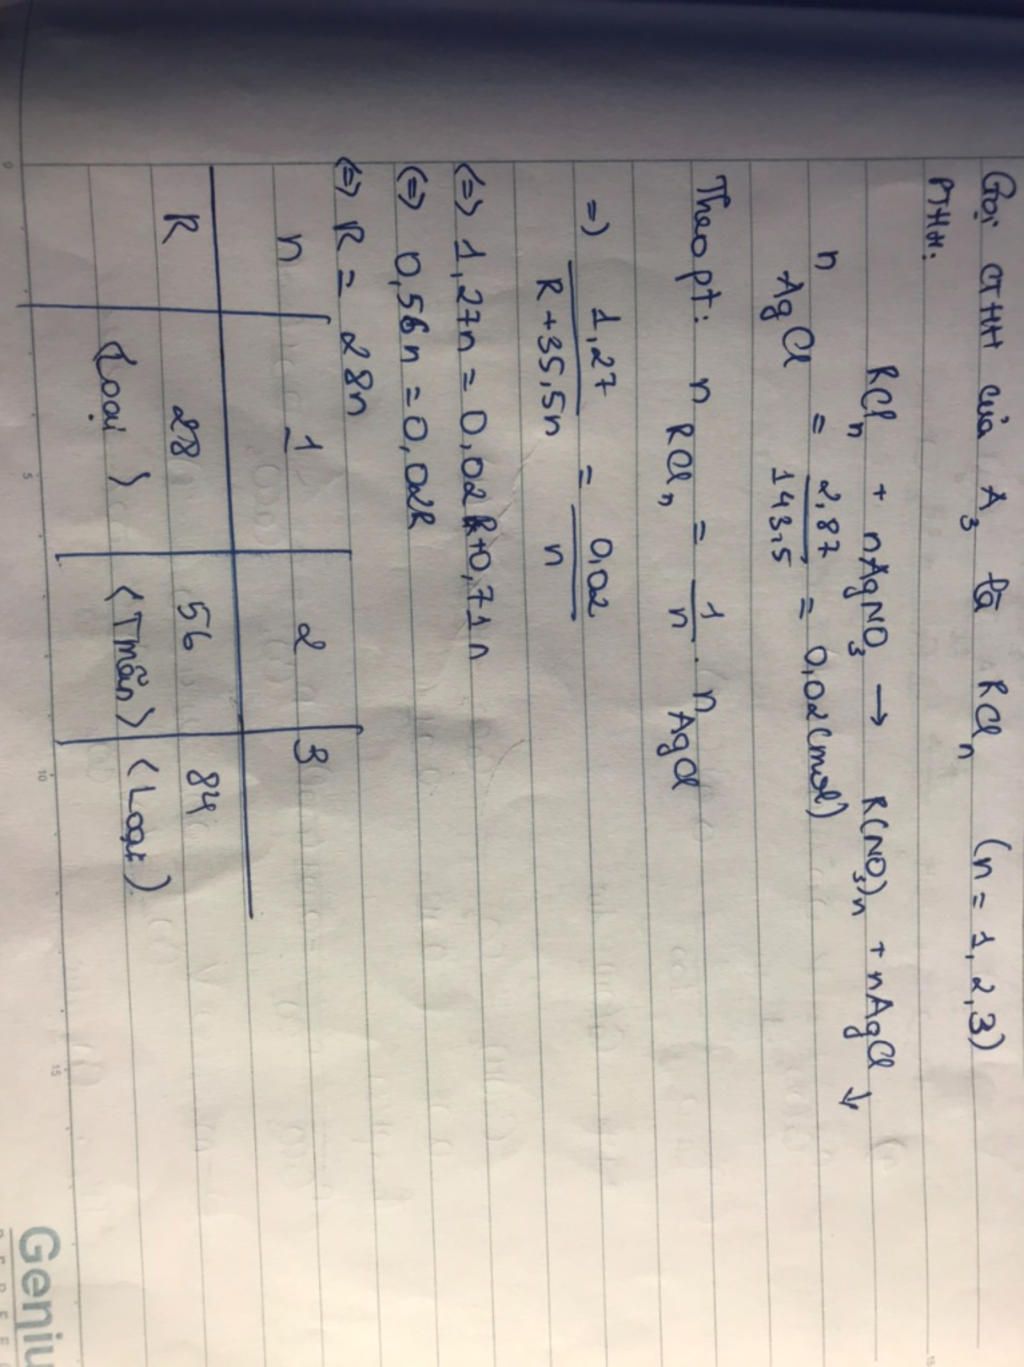 Gọi CTHH của A₃ là RClₙ (n = 1, 2, 3)
PTHH:
RClₙ + nAgNO₃ → R(NO₃)ₙ + nAgCl ↓
n AgCl = 2,87 / 143,5 = 0,02 (mol)
Theo pt: n RClₙ = 1/n . n AgCl
=> 1,27 / (R + 35,5n) = 0,02 / n
<=> 1,27n = 0,02R + 0,71n
<=> 0,56n = 0,02R
<=> R = 28n
n 1 2 3
R 28 56 84
(Loại) (Tmãn) (Loại)
Geniu